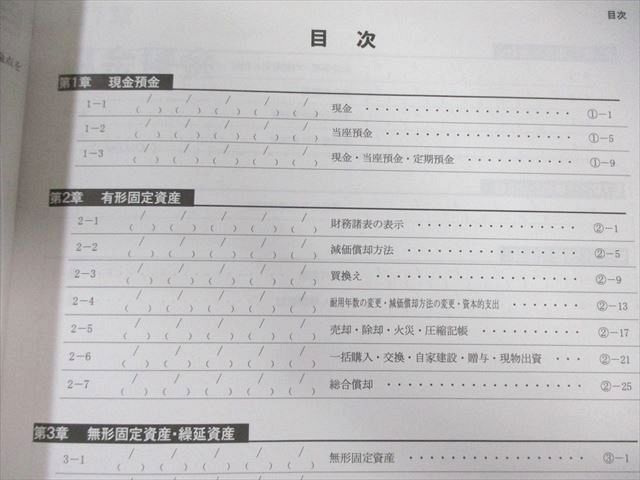 目次
目 次
第1章 現金預金
1-1 /( ) /( ) /( ) /( ) /( ) 現金 ・・・・・・・・・・・・・・・・・・・・ ①-1
1-2 /( ) /( ) /( ) /( ) /( ) 当座預金 ・・・・・・・・・・・・・・・・・・ ①-5
1-3 /( ) /( ) /( ) /( ) /( ) 現金・当座預金・定期預金 ・・・・・・・・・・ ①-9
第2章 有形固定資産
2-1 /( ) /( ) /( ) /( ) /( ) 財務諸表の表示 ・・・・・・・・・・・・・・・ ②-1
2-2 /( ) /( ) /( ) /( ) /( ) 減価償却方法 ・・・・・・・・・・・・・・・・ ②-5
2-3 /( ) /( ) /( ) /( ) /( ) 買換え ・・・・・・・・・・・・・・・・・・・ ②-9
2-4 /( ) /( ) /( ) /( ) /( ) 耐用年数の変更・減価償却方法の変更・資本的支出 ・・・・・・・ ②-13
2-5 /( ) /( ) /( ) /( ) /( ) 売却・除却・火災・圧縮記帳 ・・・・・・・・・ ②-17
2-6 /( ) /( ) /( ) /( ) /( ) 一括購入・交換・自家建設・贈与・現物出資 ・・・・ ②-21
2-7 /( ) /( ) /( ) /( ) /( ) 総合償却 ・・・・・・・・・・・・・・・・・・ ②-25
第3章 無形固定資産・繰延資産
3-1 /( ) /( ) /( ) /( ) /( ) 無形固定資産 ・・・・・・・・・・・・・・・・ ③-1